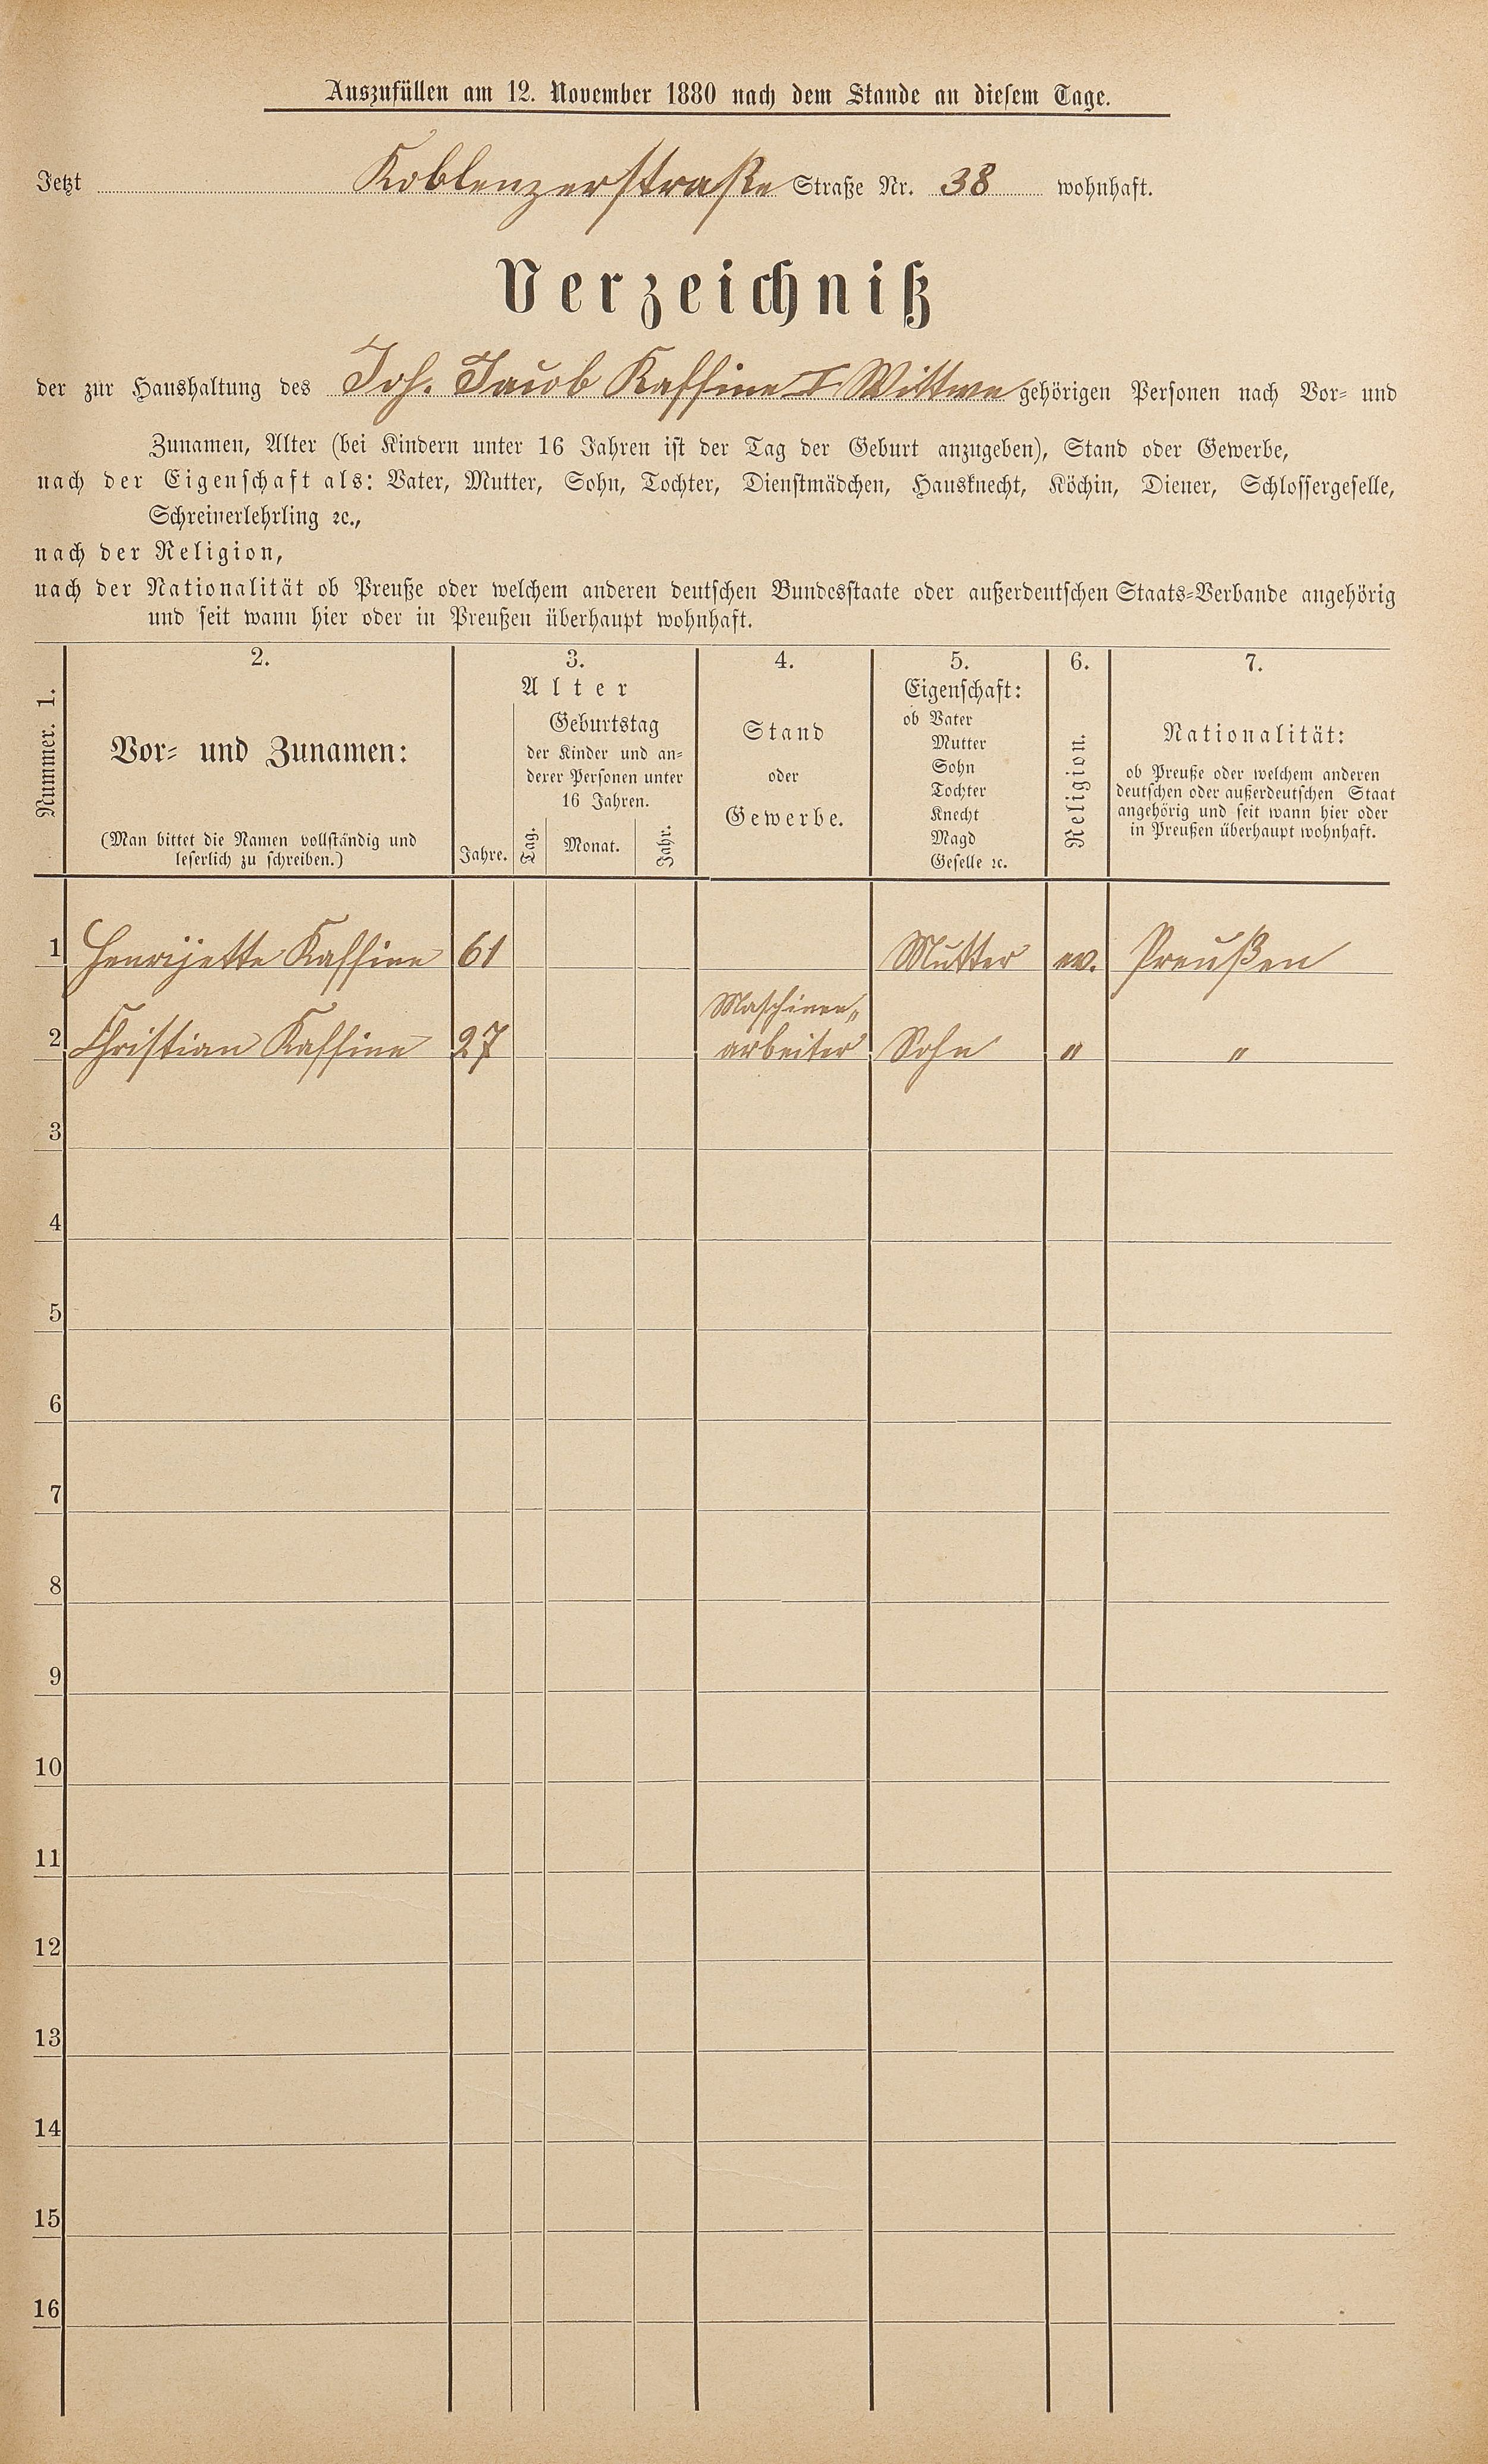 Auszufüllen am 12. November 1880 nach dem Stande an diesem Tage.
Jetzt Koblenzerstraße Straße Nr. 38 wohnhaft.
Verzeichniß
der zur Haushaltung des Joh. Jacob Kaffine I Wittwe gehörigen Personen nach Vor- und
Zunamen, Alter (bei Kindern unter 16 Jahren ist der Tag der Geburt anzugeben), Stand oder Gewerbe,
nach der Eigenschaft als: Vater, Mutter, Sohn, Tochter, Dienstmädchen, Hausknecht, Köchin, Diener, Schlossergeselle,
Schreinerlehrling ꝛc.,
nach der Religion,
nach der Nationalität ob Preuße oder welchem anderen deutschen Bundesstaate oder außerdeutschen Staats-Verbande angehörig
und seit wann hier oder in Preußen überhaupt wohnhaft.
Nummer. 1.
2.
Vor- und Zunamen:
(Man bittet die Namen vollständig und
leserlich zu schreiben.)
3.
Alter
Jahre.
Geburtstag
der Kinder und an-
derer Personen unter
16 Jahren.
Tag.
Monat.
Jahr.
4.
Stand
oder
Gewerbe.
5.
Eigenschaft:
ob Vater
Mutter
Sohn
Tochter
Knecht
Magd
Geselle ꝛc.
6.
Religion.
7.
Nationalität:
ob Preuße oder welchem anderen
deutschen oder außerdeutschen Staat
angehörig und seit wann hier oder
in Preußen überhaupt wohnhaft.
1 Henrijette Kaffine 61 Mutter ev. Preußen
2 Christian Kaffine 27 Maschinen-
arbeiter Sohn " "
3
4
5
6
7
8
9
10
11
12
13
14
15
16